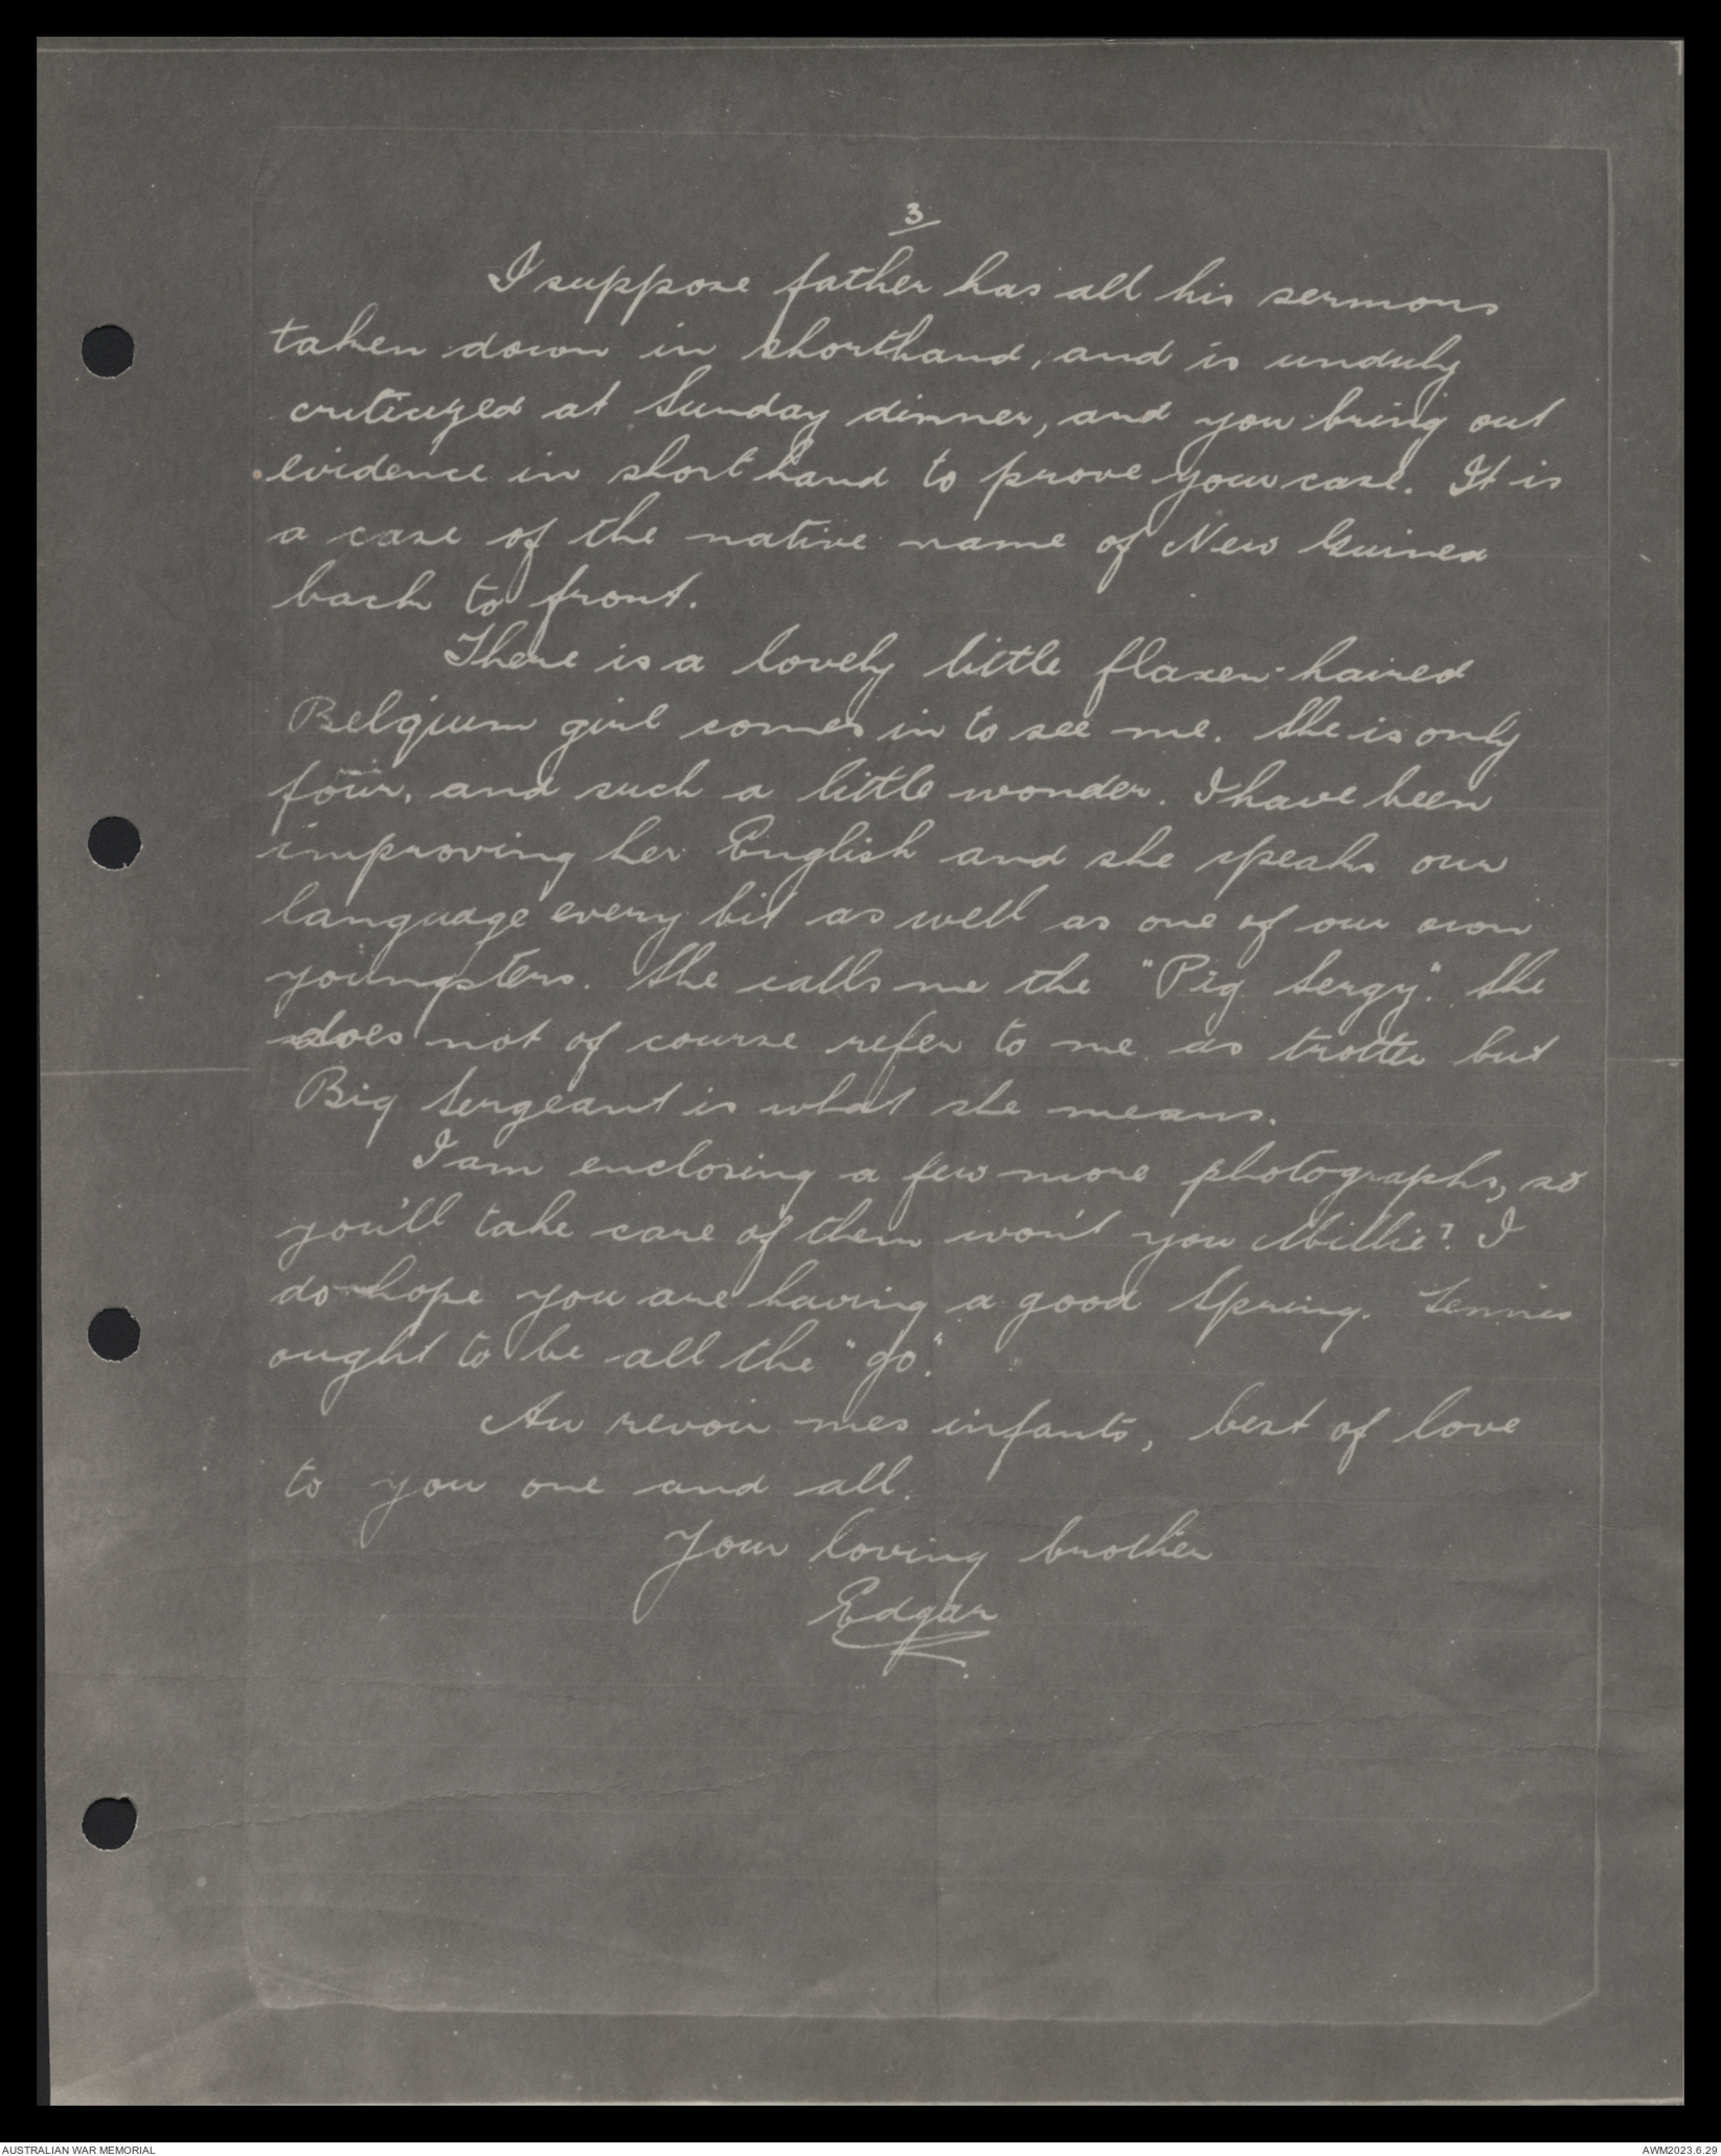 3
I suppose father has all his sermons
taken down in shorthand, and is unduly
criticized at Sunday dinner, and you bring out
evidence in short hand to prove your case. It is
a case of the native name of New Guinea
back to front.
There is a lovely little flaxen-haired
Belgium girl comes in to see me. She is only
four, and such a little wonder. I have been
improving her English and she speaks our
language every bit as well as one of our own
youngsters. She calls me the "Pig Sergy." She
does not of course refer to me as trotter but
Big Sergeant is what she means.
I am enclosing a few more photographs, so
you'll take care of them won't you Millie? I
do hope you are having a good Spring. Tennis
ought to be all the "go."
Au revoir mes infants, best of love
to you one and all.
Your loving brother
Edgar
AUSTRALIAN WAR MEMORIAL
AWM2023.6.29